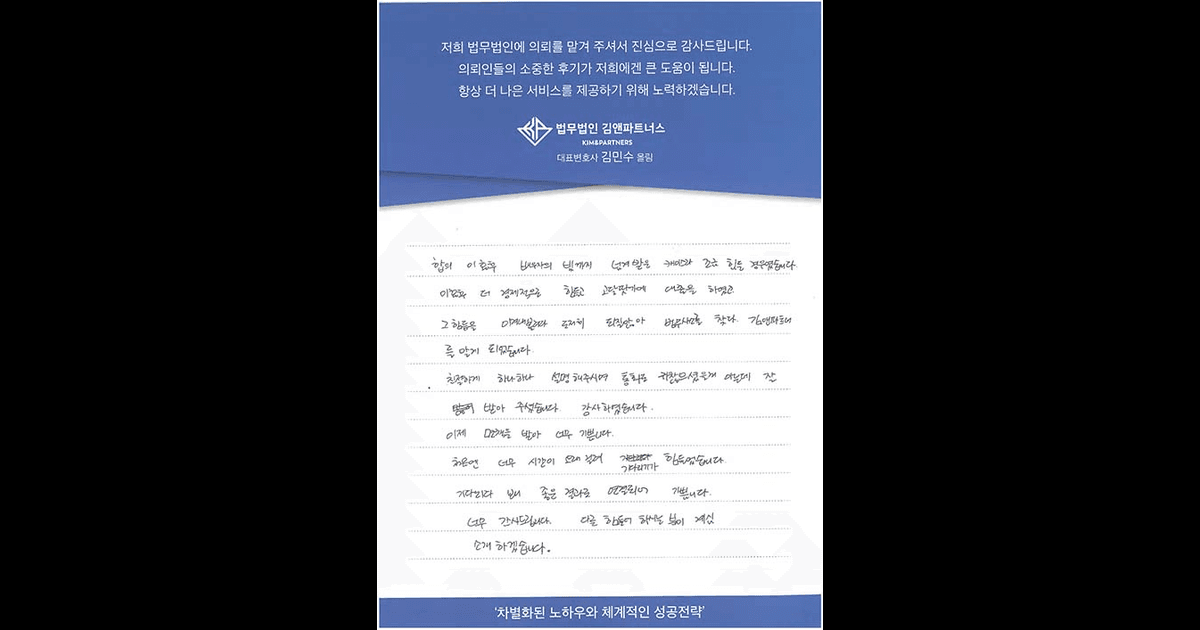 저희 법무법인에 의뢰를 맡겨 주셔서 진심으로 감사드립니다.
의뢰인들의 소중한 후기가 저희에겐 큰 도움이 됩니다.
항상 더 나은 서비스를 제공하기 위해 노력하겠습니다.
법무법인 김앤파트너스
KIM&PARTNERS
대표변호사 김민수 올림
합의 이혼후 빚까지 넘겨 받은 조금 힘든 경우였습니다.
이혼후 더 경제적으로 힘들고 대출을 하였고
그 힘듬은 도저히 되질않아 법무사를 찾다. 김앤파트너
를 맡게 되었습니다.
친절하게 하나하나 설명해주시며 통화로 귀찮으셨을건데 잘
받아 주셨습니다. 감사하였습니다.
이제 면책을 받아 너무 기쁩니다.
처음엔 너무 시간이 오래 걸려 기다리기가 힘들었습니다.
기다리다 보니 좋은 결과로 연결되어 기쁩니다.
너무 감사드립니다. 다른 힘들어 하시는 분이 계심
소개 하겠습니다.
'차별화된 노하우와 체계적인 성공전략'